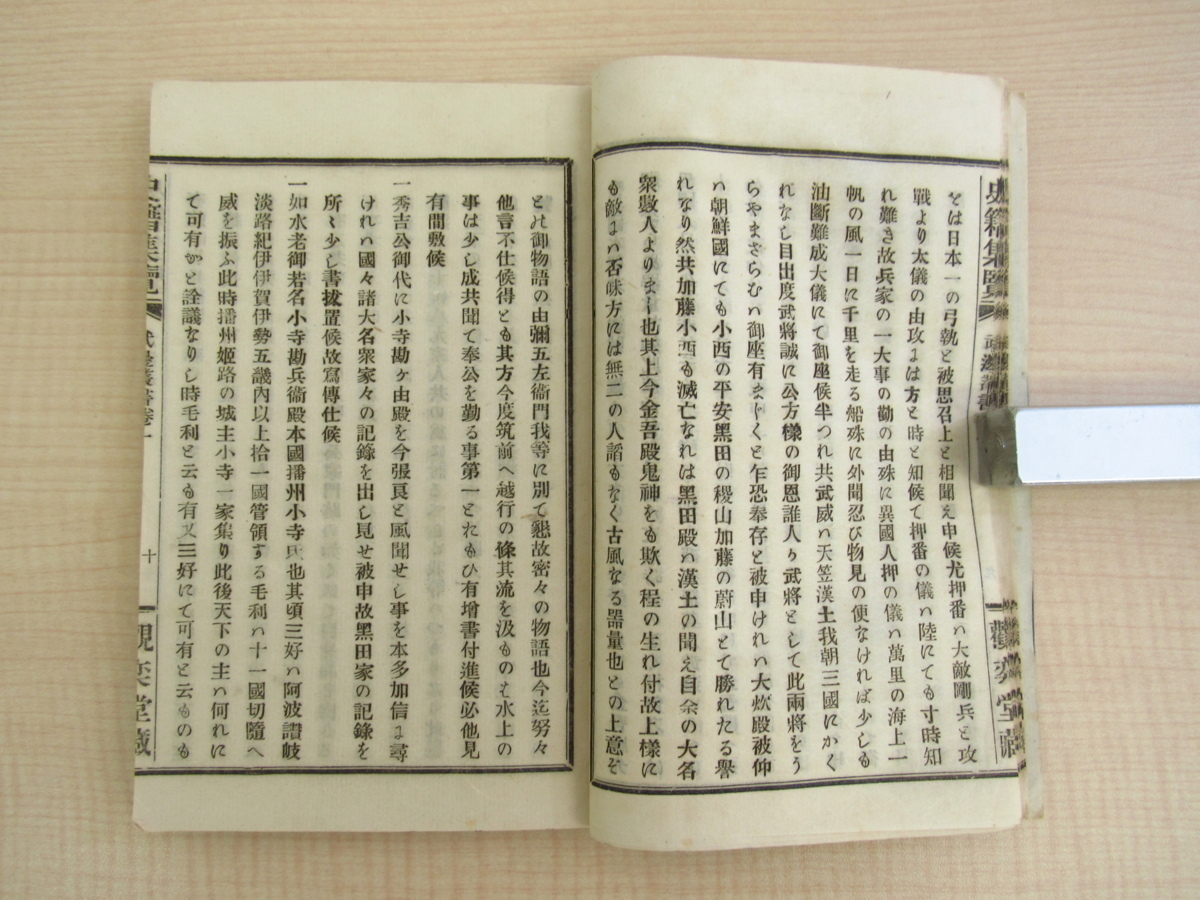 とは日本一の弓執と被思召上と相聞え申候尤押番ハ大敵剛兵と攻
戰より太儀の由攻には方と時と知候て押番の儀ハ陸にても寸時知
れ難き故兵家の一大事の勤の由殊に異國人押の儀ハ萬里の海上一
帆の風一日に千里を走る船殊に外聞忍び物見の便なければ少しも
油斷難成大儀にて御座候半つれ共武威ハ天笠漢土我朝三國にかく
れなし目出度武將誠に公方樣の御恩誰人り武將として此兩將をう
らやまさらむハ御座有ましくと乍恐奉存と被申けれハ大炊殿被仰
ハ朝鮮國にても小西の平安黑田の稷山加藤の蔚山とて勝れたる譽
れなり然共加藤小西も滅亡なれは黑田殿ハ漢土の聞え自余の大名
衆數人よりまし也其上今金吾殿鬼神をも欺く程の生れ付故上樣に
も敵にハ否味方には無二の人謟もなく古風なる器量也との上意そ
史籍集覽
觀奕堂藏
との御物語の由彌五左衞門我等に別て懇故密々の物語也今迄努々
他言不仕候得とも其方今度筑前へ越行の條其流を汲ものそ水上の
事は少し成共聞て奉公を勤る事第一とれもひ有增書付進候必他見
有間敷候
一秀吉公御代に小寺勘ヶ由殿を今張良と風聞せし事を本多加信に尋
けれハ國々諸大名衆家々の記錄を出し見せ被申故黑田家の記錄を
所々少し書拔置候故寫傳仕候
一如水老御若名小寺勘兵衞殿本國播州小寺氏也其頃三好ハ阿波讃岐
淡路紀伊伊賀伊勢五畿內以上拾一國管領する毛利ハ十一國切隨へ
威を振ふ此時播州姬路の城主小寺一家集り此後天下の主ハ何れに
て可有かと詮議なりし時毛利と云も有又三好にて可有と云ものも
十
觀奕堂藏